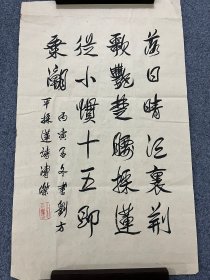 落日晴江裏荆
歌艷楚腰採蓮
從小慣十五即
乗潮
丙寅子冬書劉方
平採蓮詩博榮